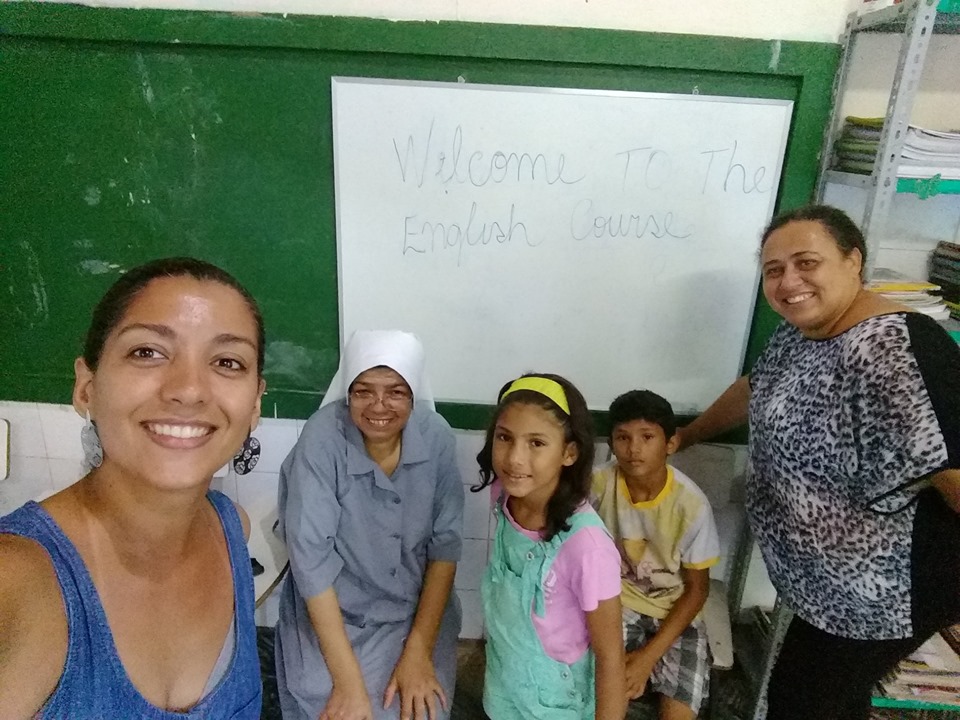 Welcome To The
English Course